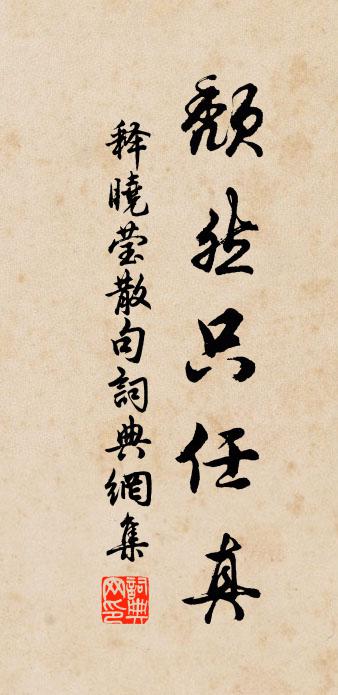 颓然只任真
释晓莹散句词典网集
词典网印